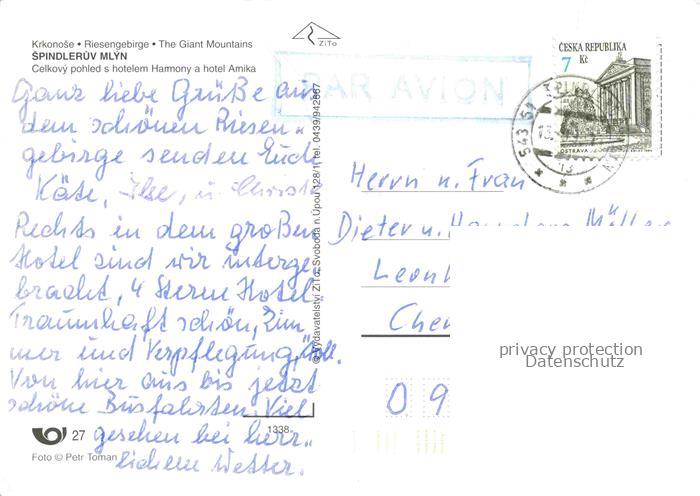 Krkonoše • Riesengebirge • The Giant Mountains
ŠPINDLERŮV MLÝN
Celkový pohled s hotelem Harmony a hotel Amika
ZiTo
PAR AVION
ČESKÁ REPUBLIKA
7 Kč
OSTRAVA
543 51
Ganz liebe Grüße aus
dem schönen Riesen„
gebirge senden Euch
Käte, Ilse, u. Christa
Rechts in dem großen
Hotel sind wir unterge
bracht, 4 Stern Hotel.
Traumhaft schön, Zim„
mer und Verpflegung, toll.
Von hier aus bis jetzt
schöne Busfahrten. Viel
gesehen bei herr„
lichem Wetter.
© Vydavatelství ZiTo, Svoboda n.Úpou 128/1, tel. 0439/942867
Herrn u. Frau
Dieter u. Müller
Leon
Che
0 9
privacy protection
Datenschutz
27
1338
Foto © Petr Toman